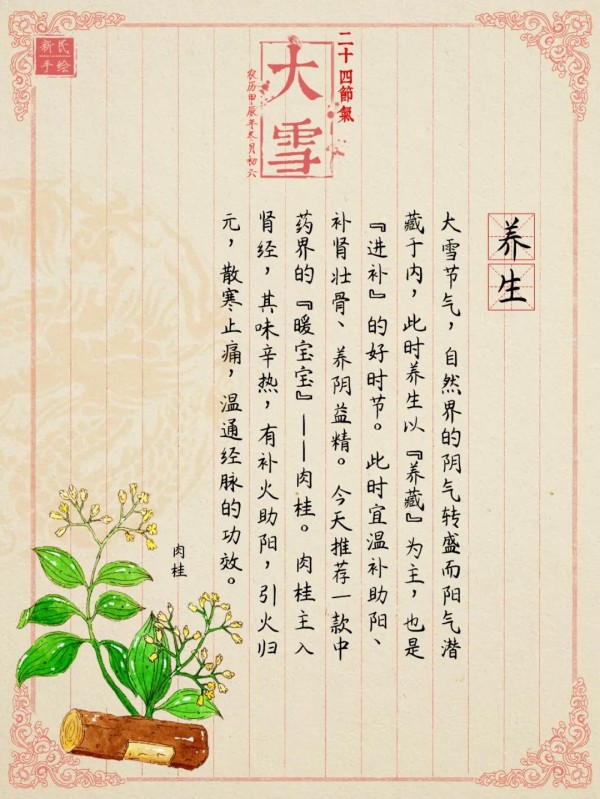 二十四節氣
大雪
农历甲辰年冬月初六
新氏
手绘
养生
大雪节气，自然界的阴气转盛而阳气潜
藏于内，此时养生以『养藏』为主，也是
『进补』的好时节。此时宜温补助阳、
补肾壮骨、养阴益精。今天推荐一款中
药界的『暖宝宝』——肉桂。肉桂主入
肾经，其味辛热，有补火助阳，引火归
元，散寒止痛，温通经脉的功效。
肉桂